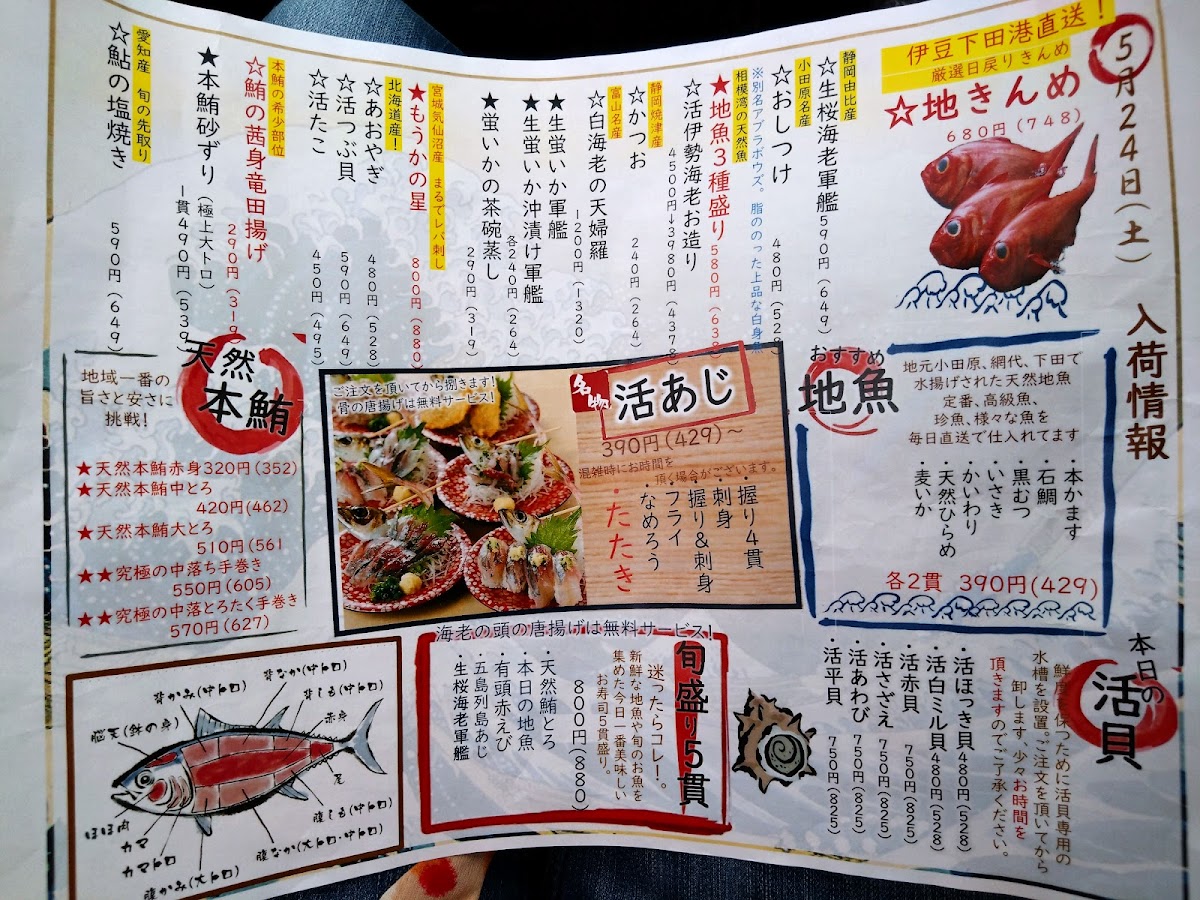 5月24日(土) 入荷情報
伊豆下田港直送!
厳選日戻りきんめ
☆地きんめ
680円(748)
静岡由比産
☆生桜海老軍艦 590円(649)
小田原名産
☆おしつけ 480円(528
※別名アブラボウズ。脂ののった上品な白身魚
相模湾の天然魚
★地魚3種盛り 580円(638
☆活伊勢海老お造り
4500円→3980円(4378
静岡焼津産
☆かつお 240円(264)
富山名産
☆白海老の天婦羅
1200円(1320)
★生蛍いか軍艦
★生蛍いか沖漬け軍艦
各240円(264)
★蛍いかの茶碗蒸し
290円(319)
宮城気仙沼産 まるでレバ刺し
★もうかの星 800円(880)
北海道産!
☆あおやぎ 480円(528)
☆活つぶ貝 590円(649)
☆活たこ 450円(495)
本鮪の希少部位
☆鮪の茜身竜田揚げ
290円(319)
★本鮪砂ずり(極上大トロ)
一貫490円(539)
愛知産 旬の先取り
☆鮎の塩焼き 590円(649)
おすすめ
地魚
地元小田原、網代、下田で
水揚げされた天然地魚
定番、高級魚、
珍魚、様々な魚を
毎日直送で仕入れてます
・本かます
・石鯛
・黒むつ
・いさき
・かいわり
・天然ひらめ
・麦いか
各2貫 390円(429)
ご注文を頂いてから捌きます!
骨の唐揚げは無料サービス!
名物
活あじ
390円(429)〜
混雑時にお時間を
頂く場合がございます。
・握り4貫
・刺身
・握り&刺身
・フライ
・なめろう
・たたき
天然
本鮪
地域一番の
旨さと安さに
挑戦!
★天然本鮪赤身320円(352)
★天然本鮪中とろ
420円(462)
★天然本鮪大とろ
510円(561
★★究極の中落ち手巻き
550円(605)
★★究極の中落とろたく手巻き
570円(627)
本日の
活貝
鮮度 保つために活貝専用の
水槽を設置。ご注文を頂いてから
卸します、少々お時間を
頂きますのでご了承ください。
・活ほっき貝 480円(528)
・活白ミル貝 480円(528)
・活赤貝 750円(825)
・活さざえ 750円(825)
・活あわび 750円(825)
・活平貝 750円(825)
海老の頭の唐揚げは無料サービス!
旬盛り5貫
迷ったらコレ!。
新鮮な地魚や旬のお魚を
集めた今日一番美味しい
お寿司5貫盛り。
800円(880)
・天然鮪とろ
・本日の地魚
・有頭赤えび
・五島列島あじ
・生桜海老軍艦
背なか(中トロ)
背かみ(中トロ)
背しも(中トロ)
脳天(鉢の身)
赤身
尾
腹しも(中トロ)
腹なか(大トロ・中トロ)
ほほ肉
カマ
カマトロ
腹かみ(大トロ)